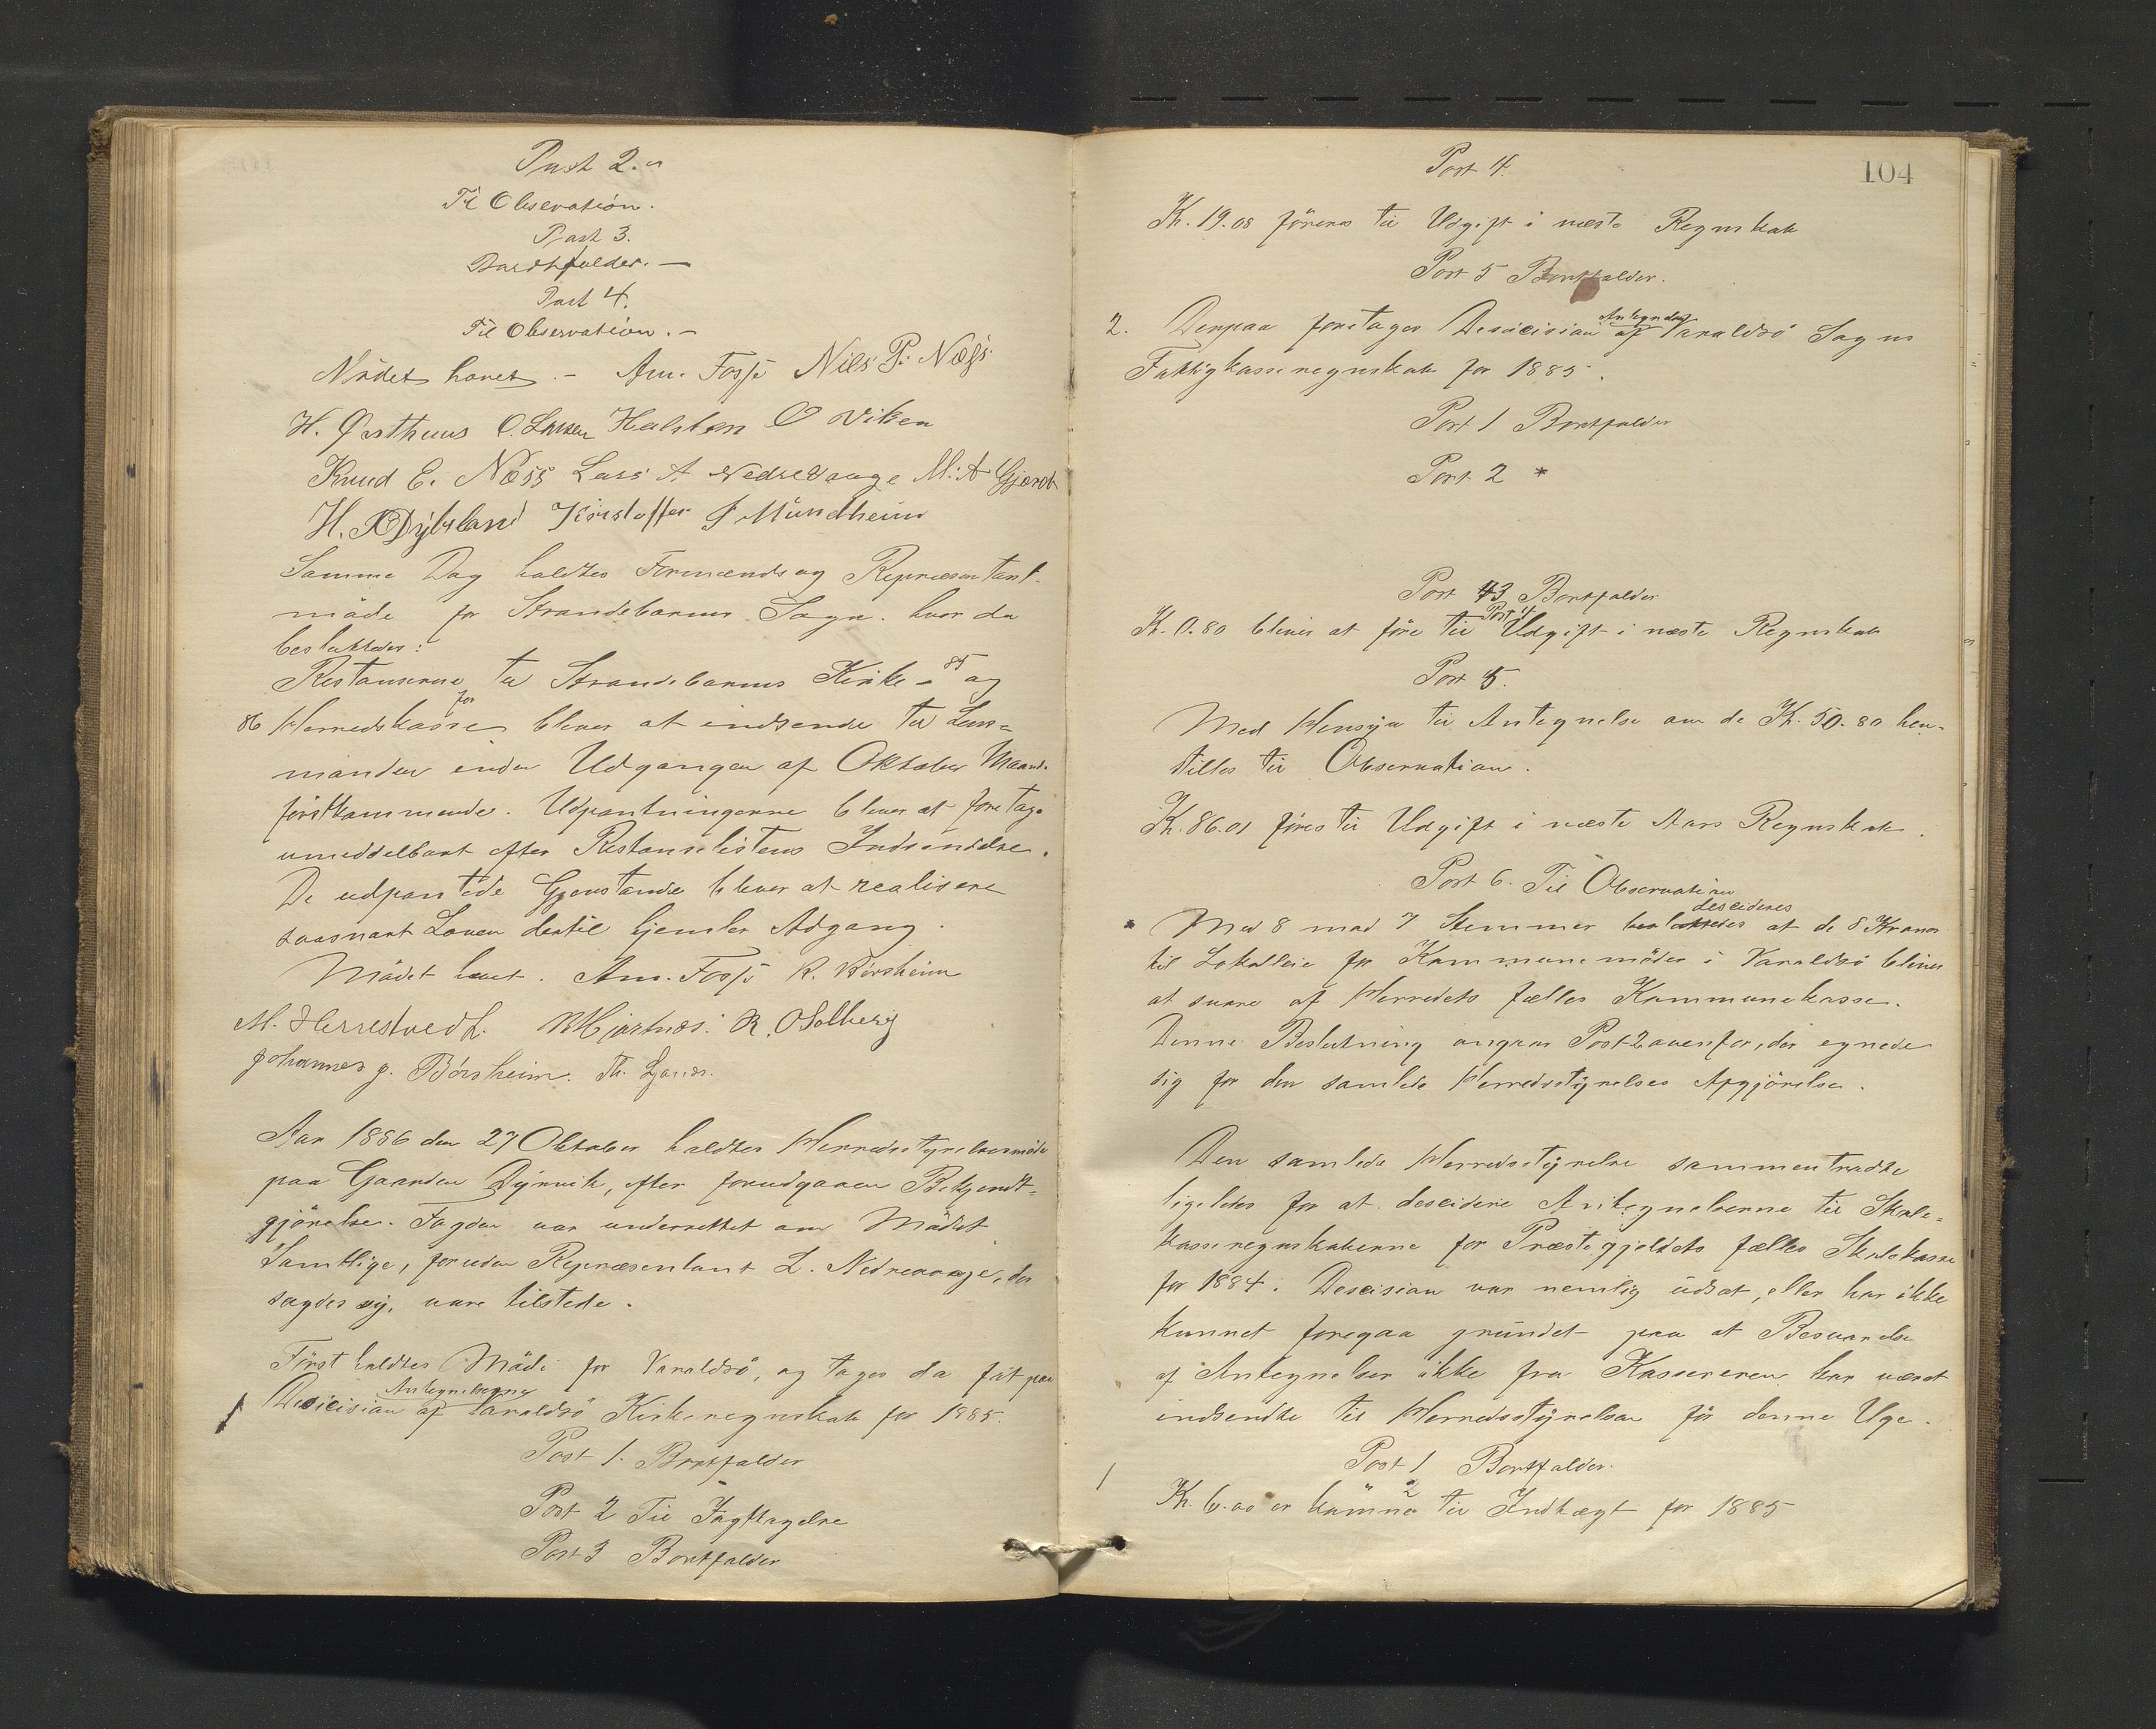 Post 2.
Til Observation.
Post 3.
Bortfalder. —
Post 4.
Til Observation. —
Mödet hævet. — Am. Fosse Nils P. Næss
H. Østhuus O. Larsen Halsten O Viken
Knud E. Næss Lars A Nedrevaage M. A Gjerde
H. K Dybsland Kristoffer J Mundheim
Samme Dag holdtes Formænds og Repræsentant-
möde for Strandebarms Sogn. hvor da
besluttedes:
Restanserne til Strandebarms Kirke - 85 og
86 Herredskasse for bliver at indsende til Lens-
manden inden Udgangen af Oktober Maaned
förstkommende. Udpantningerne bliver at foretage
umiddelbart efter Restanselistens Indsendelse.
De udpantede Gjenstande bliver at realisere
saasnart Loven dertil hjemler Adgang.
Mödet hævet. Am. Fosse R. Börsheim
M. Herrestvedt. N Hjartnes. R. O Solberg
Johannes J. Börsheim. Th.
Aar 1886 den 27 Oktober holdtes Herredsstyrelsesmöde
paa Gaarden Dysvik, efter forudgaaen Bekjendt-
gjörelse. Fogden var underrettet om Mödet
Samtlige, foruden Repræsentant L. Nedrevaage, der
sagdes syg, vare tilstede.
Först holdtes Möde for Varaldsö, og toges da fat paa
Antegnelserne
1 Desicision af Varaldsö Kirkeregnskab for 1885.
Post 1. Bortfalder
Post 2 Til Iagttagelse
Post 3 Bortfalder
104
Post 4.
Kr. 19.08 föres til Udgift i næste Regnskab
Post 5 Bortfalder.
2. Derpaa foretages Desicision af Varaldsö Sogns
Fattigkasseregnskab for 1885.
Post 1 Bortfalder
Post 2 *
Post 3 Bortfalder
Post 4
Kr. 0.80 bliver at före til Udgift i næste Regnskab
Post 5.
Med Hensyn til Antegnelse om de Kr. 50.80 hen-
stilles til Observation.
Kr. 86.01 föres til Udgift i næste Aars Regnskab.
Post 6. Til Observation
descideres
* Med 8 mod 7 Stemmer besluttedes at de 8 Kroner
til Lokalleie for Kommunemöder i Varaldsö bliver
at svare af Herredets fælles Kommunekasse.
Denne Beslutning angaar Post 2 ovenfor, der egnede
sig for den samlede Herredsstyrelses Afgjörelse.
Den samlede Herredsstyrelse sammentraadte
ligeledes for at descidere Antegnelserne til Skole-
kasseregnskaberne for Præstegjeldets fælles Skolekasse
for 1884. Descision var nemlig udsat, eller har ikke
kunnet foregaa grundet paa at Besvarelse
af Antegnelser ikke fra Kassereren har været
indsendte til Herredsstyrelsen för denne Uge.
1 Post 1 Bortfalder.
2
Kr. 6.00 er kommen til Indtægt for 1885